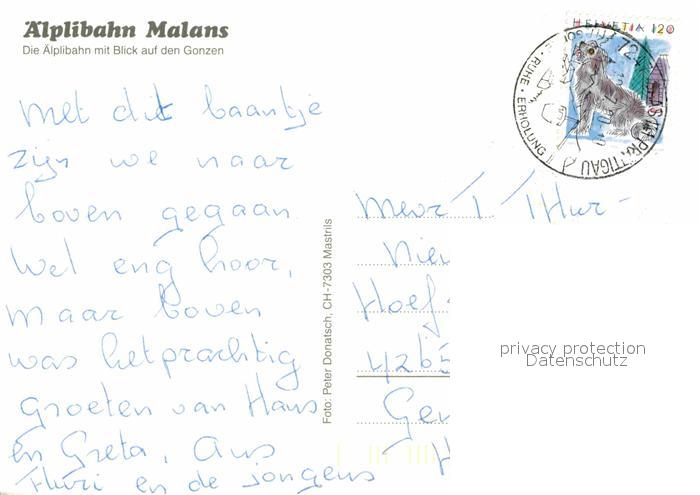 Älplibahn Malans
Die Älplibahn mit Blick auf den Gonzen
HELVETIA 120
RUHE · ERHOLUNG
PRÄTTIGAU
Met dit baantje
zijn we naar
boven gegaan.
Wel eng hoor,
maar boven
was het prachtig
Groeten van Hans
en Greta, Aus
Thuri en de jongens
Foto: Peter Donatsch, CH-7303 Mastrils
Mevr T. Thur-
Nieu
Hoef
4265
Gen
H
privacy protection
Datenschutz